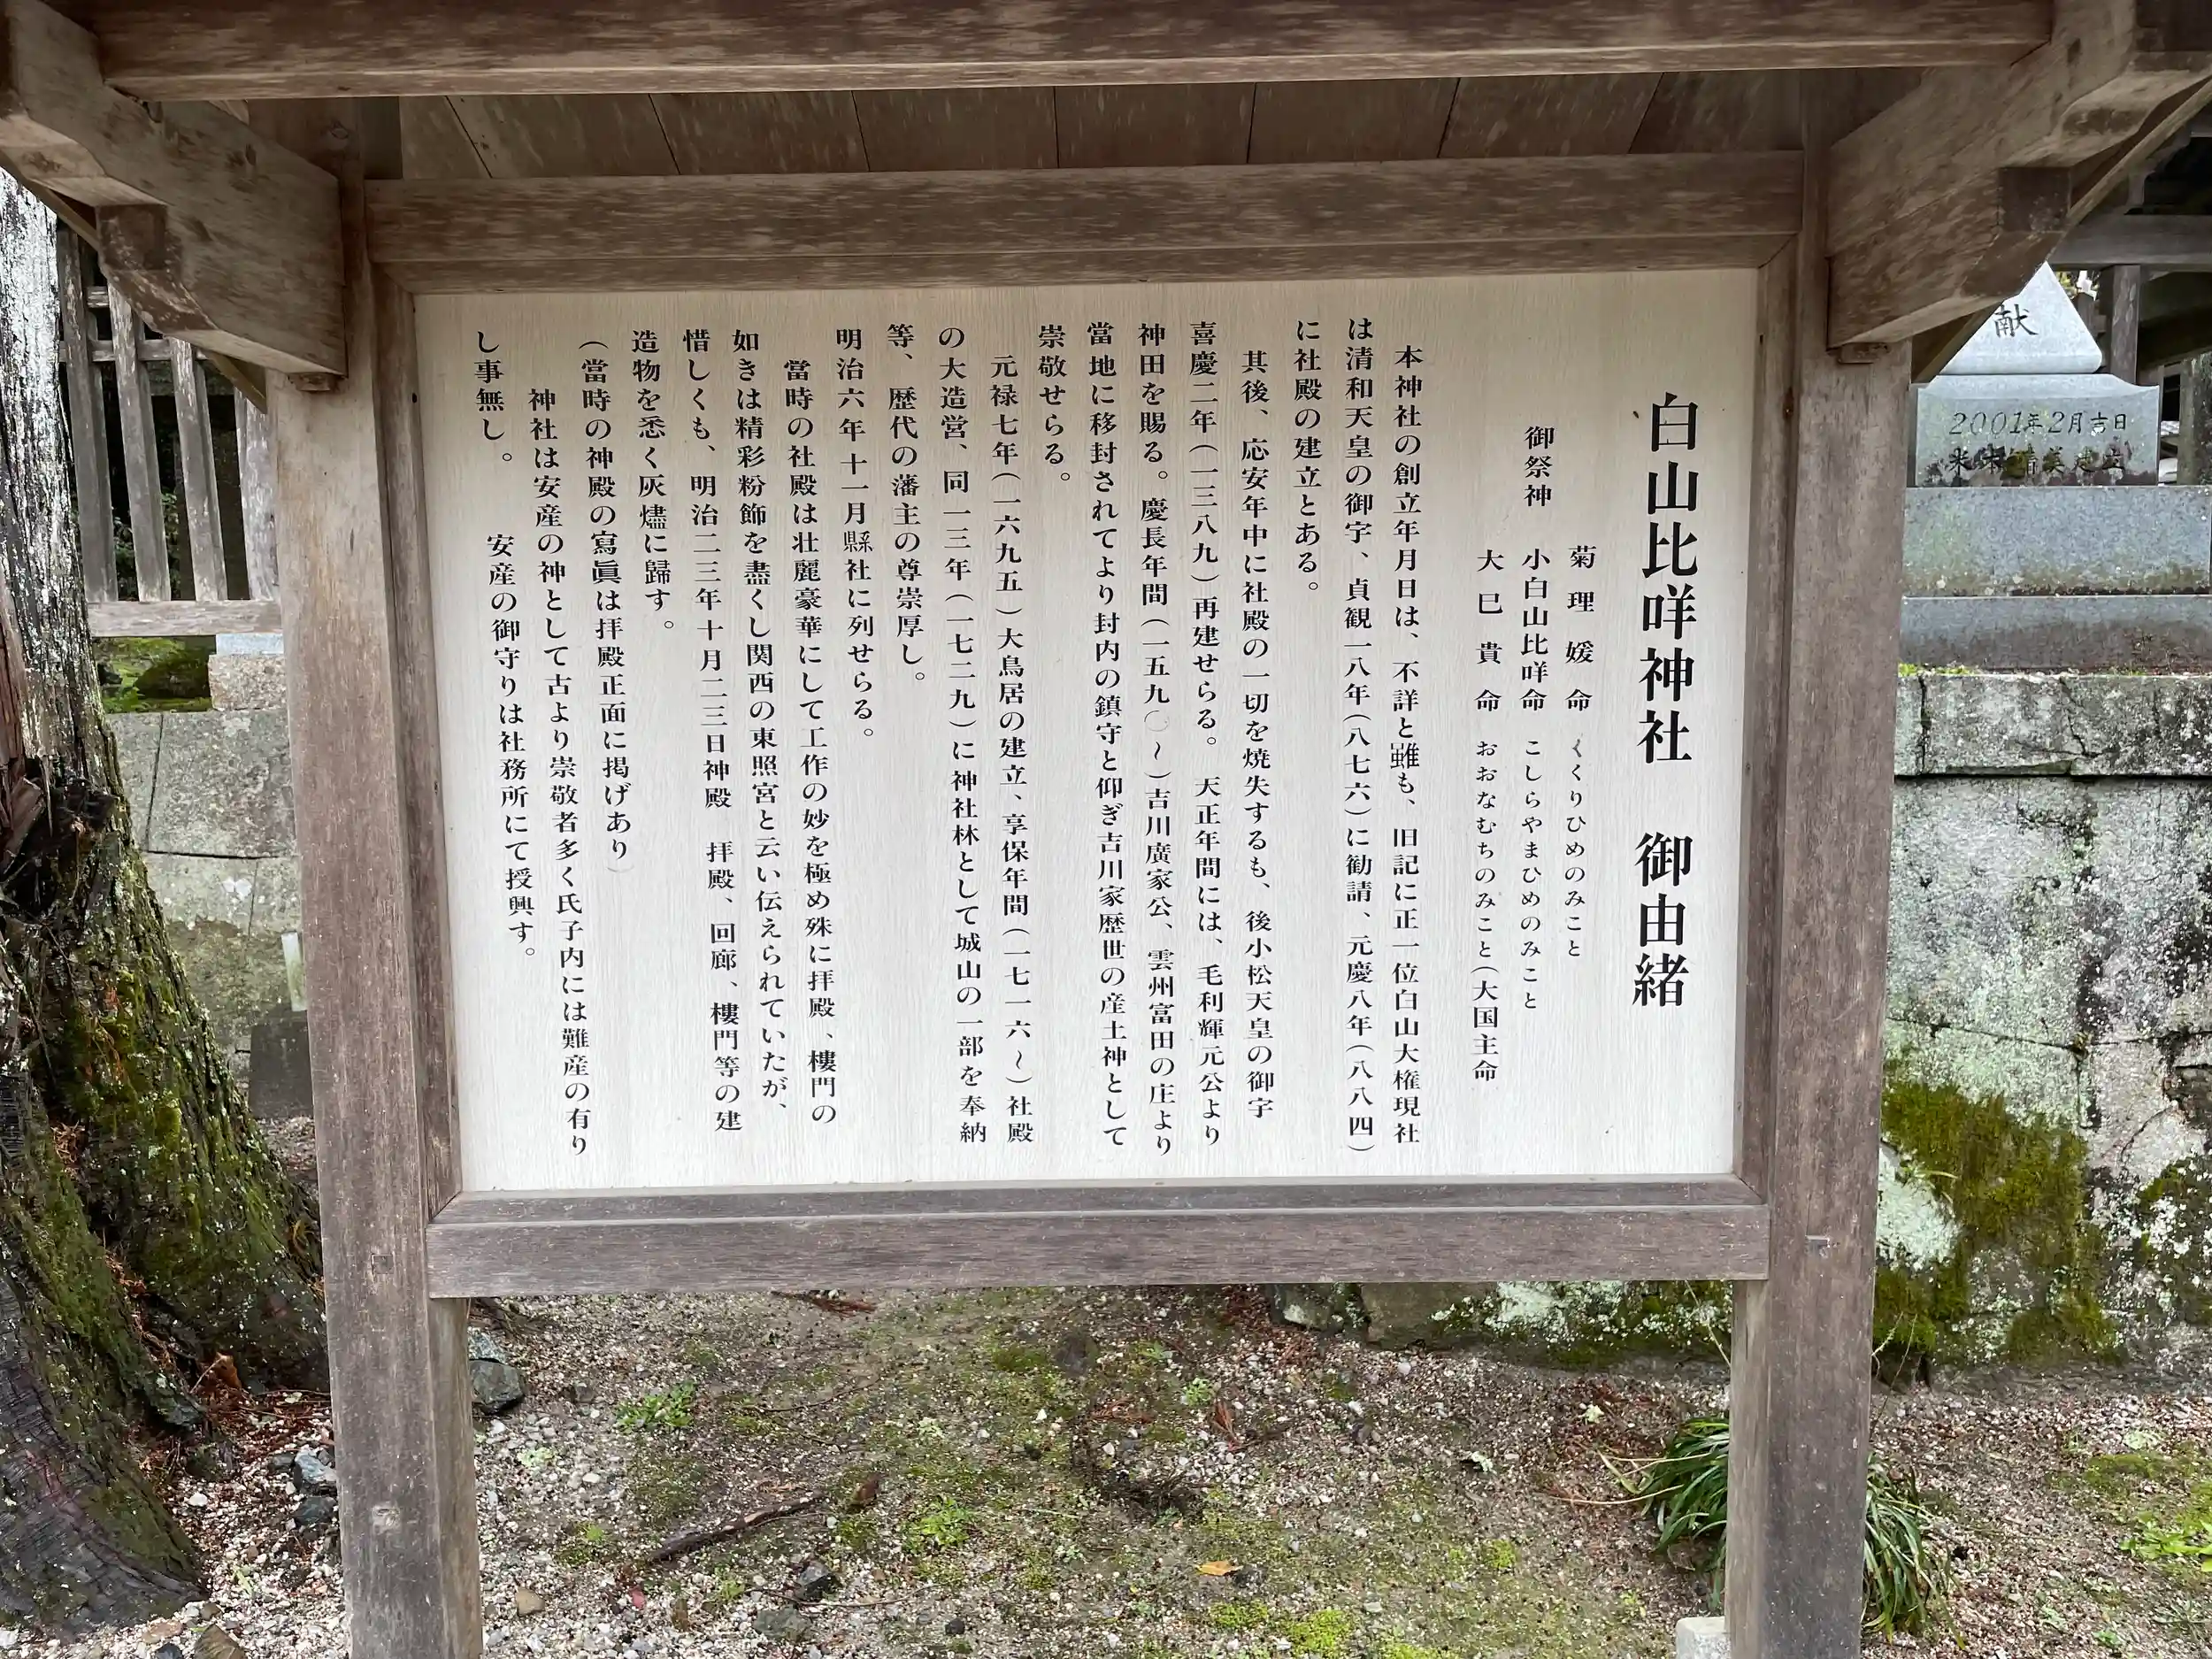 白山比咩神社　御由緒
菊理媛命　くくりひめのみこと
御祭神　小白山比咩命　こしらやまひめのみこと
大巳貴命　おおなむちのみこと(大国主命
本神社の創立年月日は、不詳と雖も、旧記に正一位白山大権現社
は清和天皇の御宇、貞観一八年(八七六)に勧請、元慶八年(八八四)
に社殿の建立とある。
其後、応安年中に社殿の一切を焼失するも、後小松天皇の御宇
喜慶二年(一三八九)再建せらる。　天正年間には、毛利輝元公より
神田を賜る。慶長年間(一五九〇～)吉川廣家公、雲州富田の庄より
當地に移封されてより封内の鎮守と仰ぎ吉川家歴世の産土神として
崇敬せらる。
元禄七年(一六九五)大鳥居の建立、享保年間(一七一六～)社殿
の大造営、同一三年(一七二九)に神社林として城山の一部を奉納
等、歴代の藩主の尊崇厚し。
明治六年十一月縣社に列せらる。
當時の社殿は壮麗豪華にして工作の妙を極め殊に拝殿、樓門の
如きは精彩粉飾を盡くし関西の東照宮と云い伝えられていたが、
惜しくも、明治二三年十月二三日神殿　拝殿、回廊、樓門等の建
造物を悉く灰燼に歸す。
(當時の神殿の寫眞は拝殿正面に掲げあり)
神社は安産の神として古より崇敬者多く氏子内には難産の有り
し事無し。　安産の御守りは社務所にて授興す。
献
2001年2月吉日